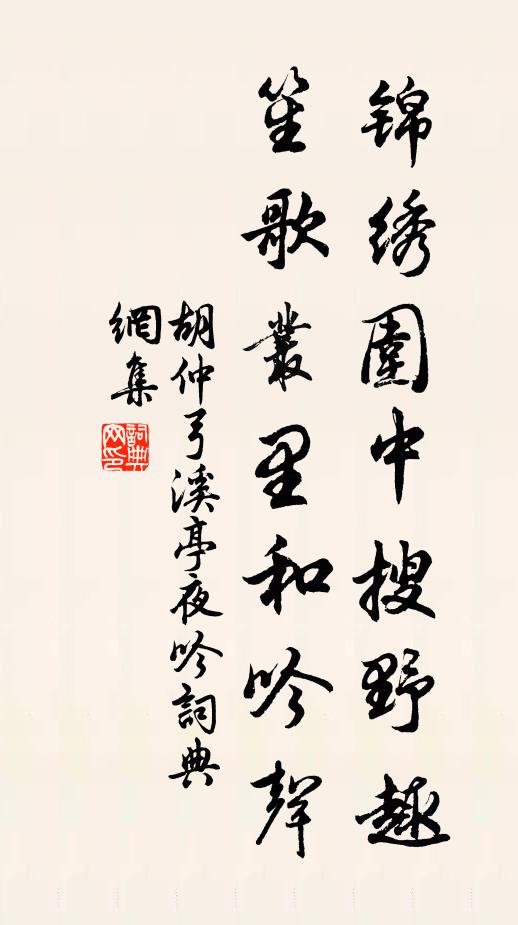 锦绣園中搜野趣
笙歌叢里和吟聲
胡仲弓溪亭夜吟詞典
網集
詞典網印